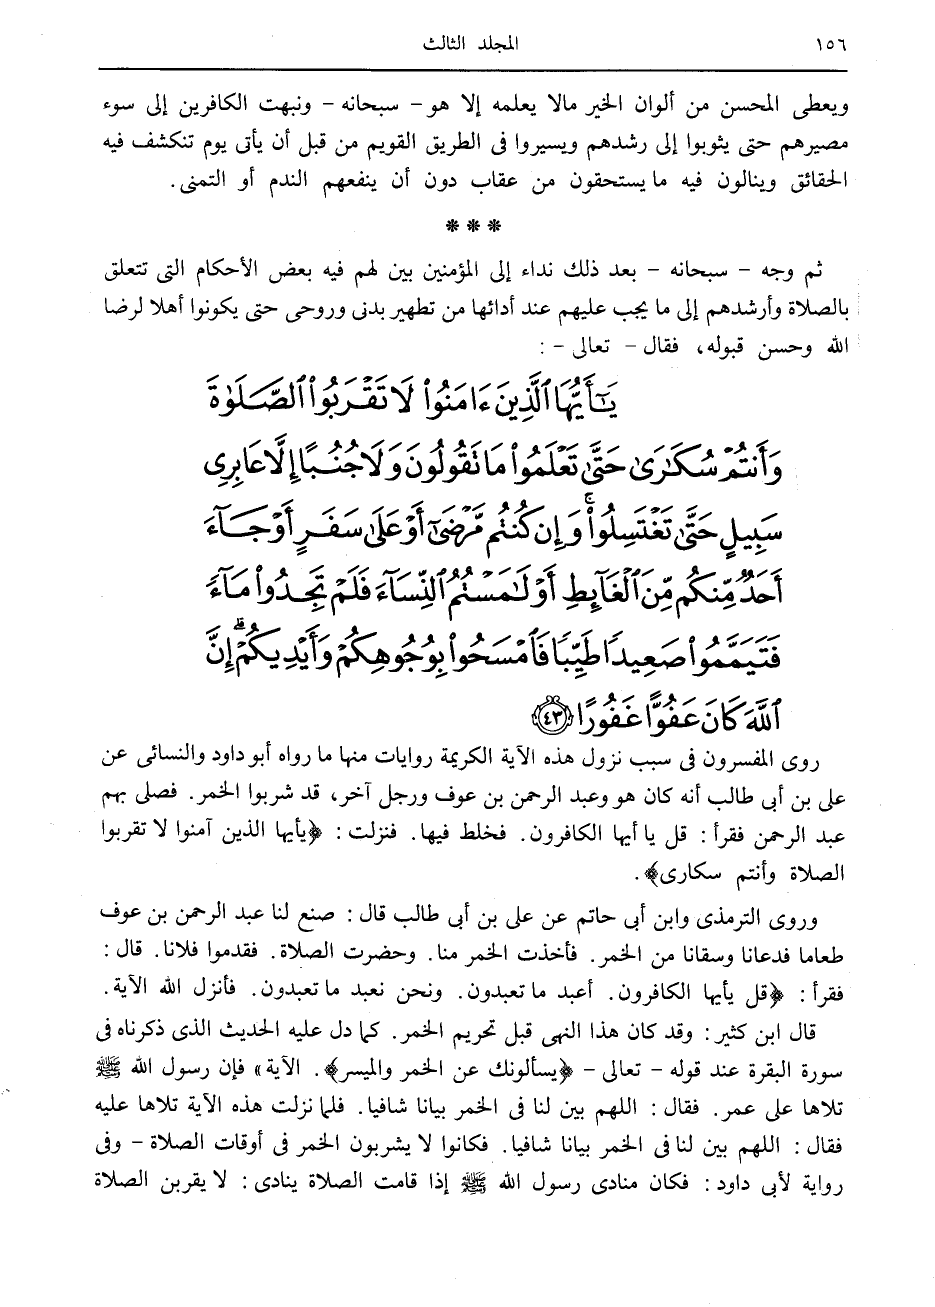 ١٥٦ المجلد الثالث
ويعطى المحسن من ألوان الخير مالا يعلمه إلا هو – سبحانه – ونبهت الكافرين إلى سوء
مصيرهم حتى يثوبوا إلى رشدهم ويسيروا فى الطريق القويم من قبل أن يأتى يوم تنكشف فيه
الحقائق وينالون فيه ما يستحقون من عقاب دون أن ينفعهم الندم أو التمنى.
* * *
ثم وجه – سبحانه – بعد ذلك نداء إلى المؤمنين بين لهم فيه بعض الأحكام التى تتعلق
بالصلاة وأرشدهم إلى ما يجب عليهم عند أدائها من تطهير بدنى وروحى حتى يكونوا أهلا لرضا
الله وحسن قبوله، فقال – تعالى – :
يَٰٓأَيُّهَا ٱلَّذِينَ ءَامَنُوا۟ لَا تَقْرَبُوا۟ ٱلصَّلَوٰةَ
وَأَنتُمْ سُكَٰرَىٰ حَتَّىٰ تَعْلَمُوا۟ مَا تَقُولُونَ وَلَا جُنُبًا إِلَّا عَابِرِى
سَبِيلٍ حَتَّىٰ تَغْتَسِلُوا۟ ۚ وَإِن كُنتُم مَّرْضَىٰٓ أَوْ عَلَىٰ سَفَرٍ أَوْ جَآءَ
أَحَدٌ مِّنكُم مِّنَ ٱلْغَآئِطِ أَوْ لَٰمَسْتُمُ ٱلنِّسَآءَ فَلَمْ تَجِدُوا۟ مَآءً
فَتَيَمَّمُوا۟ صَعِيدًا طَيِّبًا فَٱمْسَحُوا۟ بِوُجُوهِكُمْ وَأَيْدِيكُمْ ۗ إِنَّ
ٱللَّهَ كَانَ عَفُوًّا غَفُورًا ﴿٤٣﴾
روى المفسرون فى سبب نزول هذه الآية الكريمة روايات منها ما رواه أبو داود والنسائى عن
على بن أبى طالب أنه كان هو وعبد الرحمن بن عوف ورجل آخر، قد شربوا الخمر. فصلى بهم
عبد الرحمن فقرأ : قل يا أيها الكافرون. فخلط فيها. فنزلت : ﴿يأيها الذين آمنوا لا تقربوا
الصلاة وأنتم سكارى﴾.
وروى الترمذى وابن أبى حاتم عن على بن أبى طالب قال : صنع لنا عبد الرحمن بن عوف
طعاما فدعانا وسقانا من الخمر. فأخذت الخمر منا. وحضرت الصلاة. فقدموا فلانا. قال :
فقرأ : ﴿قل يأيها الكافرون. أعبد ما تعبدون. ونحن نعبد ما تعبدون. فأنزل الله الآية.
قال ابن كثير : وقد كان هذا النهى قبل تحريم الخمر. كما دل عليه الحديث الذى ذكرناه فى
سورة البقرة عند قوله – تعالى – ﴿يسألونك عن الخمر والميسر﴾. الآية» فإن رسول الله ﷺ
تلاها على عمر. فقال : اللهم بين لنا فى الخمر بيانا شافيا. فلما نزلت هذه الآية تلاها عليه
فقال : اللهم بين لنا فى الخمر بيانا شافيا. فكانوا لا يشربون الخمر فى أوقات الصلاة – وفى
رواية لأبى داود : فكان منادى رسول الله ﷺ إذا قامت الصلاة ينادى : لا يقربن الصلاة